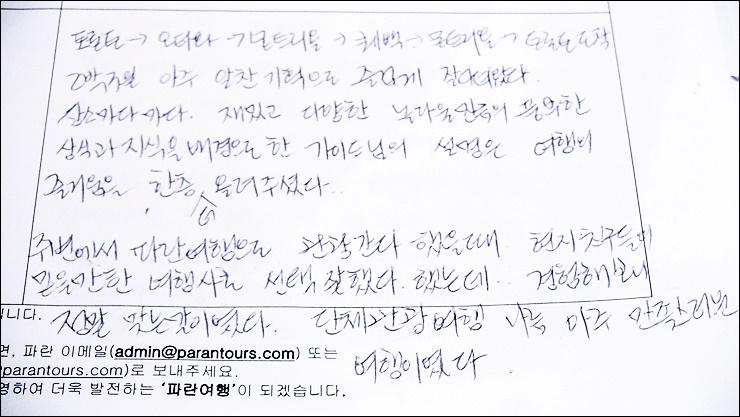 토론토 → 오타와 → 몬트리올 → 퀘백 → 몬트리올 → 토론토 도착
2박3일 아주 알찬 기획으로 즐겁게 잘 다녀왔다.
장소마다마다. 재밌고 다양한 놀라울 만큼의 풍부한
상식과 지식을 배경으로 한 가이드님의 설명은 여행의
즐거움을 한층 더 올려주셨다..
주변에서 파란여행으로 관광간다 했을때 현지친구들이
믿을만한 여행사를 선택 잘했다. 했는데.. 경험해보니
니다. 정말 맞는말이였다. 단체관광여행 아주 만족스러운
면, 파란 이메일(admin@parantours.com) 또는 여행이였다.
parantours.com)로 보내주세요.
영하여 더욱 발전하는 '파란여행'이 되겠습니다.